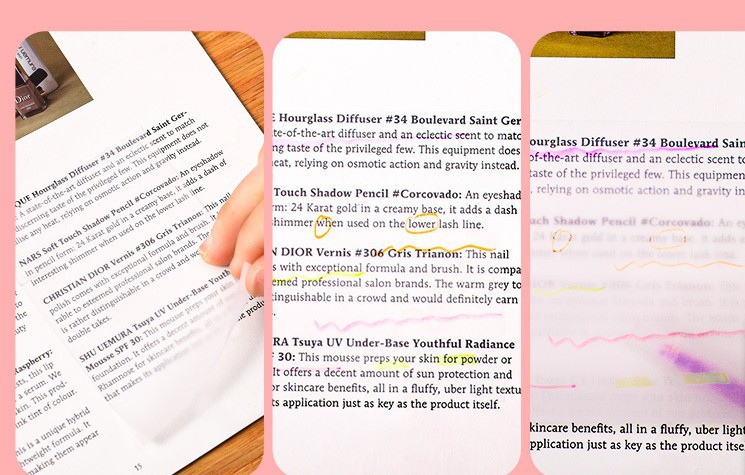 Dior
QUE Hourglass Diffuser #34 Boulevard Saint Ger-
A state-of-the-art diffuser and an eclectic scent to match
discerning taste of the privileged few. This equipment does not
use any heat, relying on osmotic action and gravity instead.
NARS Soft Touch Shadow Pencil #Corcovado: An eyeshadow
in pencil form: 24 Karat gold in a creamy base, it adds a dash of
interesting shimmer when used on the lower lash line.
CHRISTIAN DIOR Vernis #306 Gris Trianon: This nail
polish comes with exceptional formula and brush. It
rable to esteemed professional salon brands. The
is rather distinguishable in a crowd and
double takes.
SHU UEMURA Tsuya UV Under-Base Youth
Mousse SPF 30: This mousse preps your skin
foundation. It offers a decent amount of
Rhamnose for skincare benefits, all in a
that makes its application
the produ
Raspberry:
sts, this lip
a serum. We
kin. This prod-
nk tint of colour.
his is a unique hybrid
htweight formula. It
making them appear
15
E Hourglass Diffuser #34 Boulevard Saint Ger
te-of-the-art diffuser and an eclectic scent to matc
ng taste of the privileged few. This equipment does
eat, relying on osmotic action and gravity instead.
Touch Shadow Pencil #Corcovado: An eyeshad
rm: 24 Karat gold in a creamy base, it adds a dash
shimmer when used on the lower lash line.
N DIOR Vernis #306 Gris Trianon: This nail
s with exceptional formula and brush. It is compa
emed professional salon brands. The warm grey to
tinguishable in a crowd and would definitely earn
.
RA Tsuya UV Under-Base Youthful Radiance
F 30: This mousse preps your skin for powder or
It offers a decent amount of sun protection and
or skincare benefits, all in a fluffy, uber light textu
ts application just as key as the product itself.
ourglass Diffuser #34 Boulevard Saint
of-the-art diffuser and an eclectic scent to
taste of the privileged few. This equipmen
, relying on osmotic action and gravity in
uch Shadow Pencil #Corcovado: An eye
24 Karat gold in a creamy base, it adds a
kincare benefits, all in a fluffy, uber light
pplication just as key as the product itse